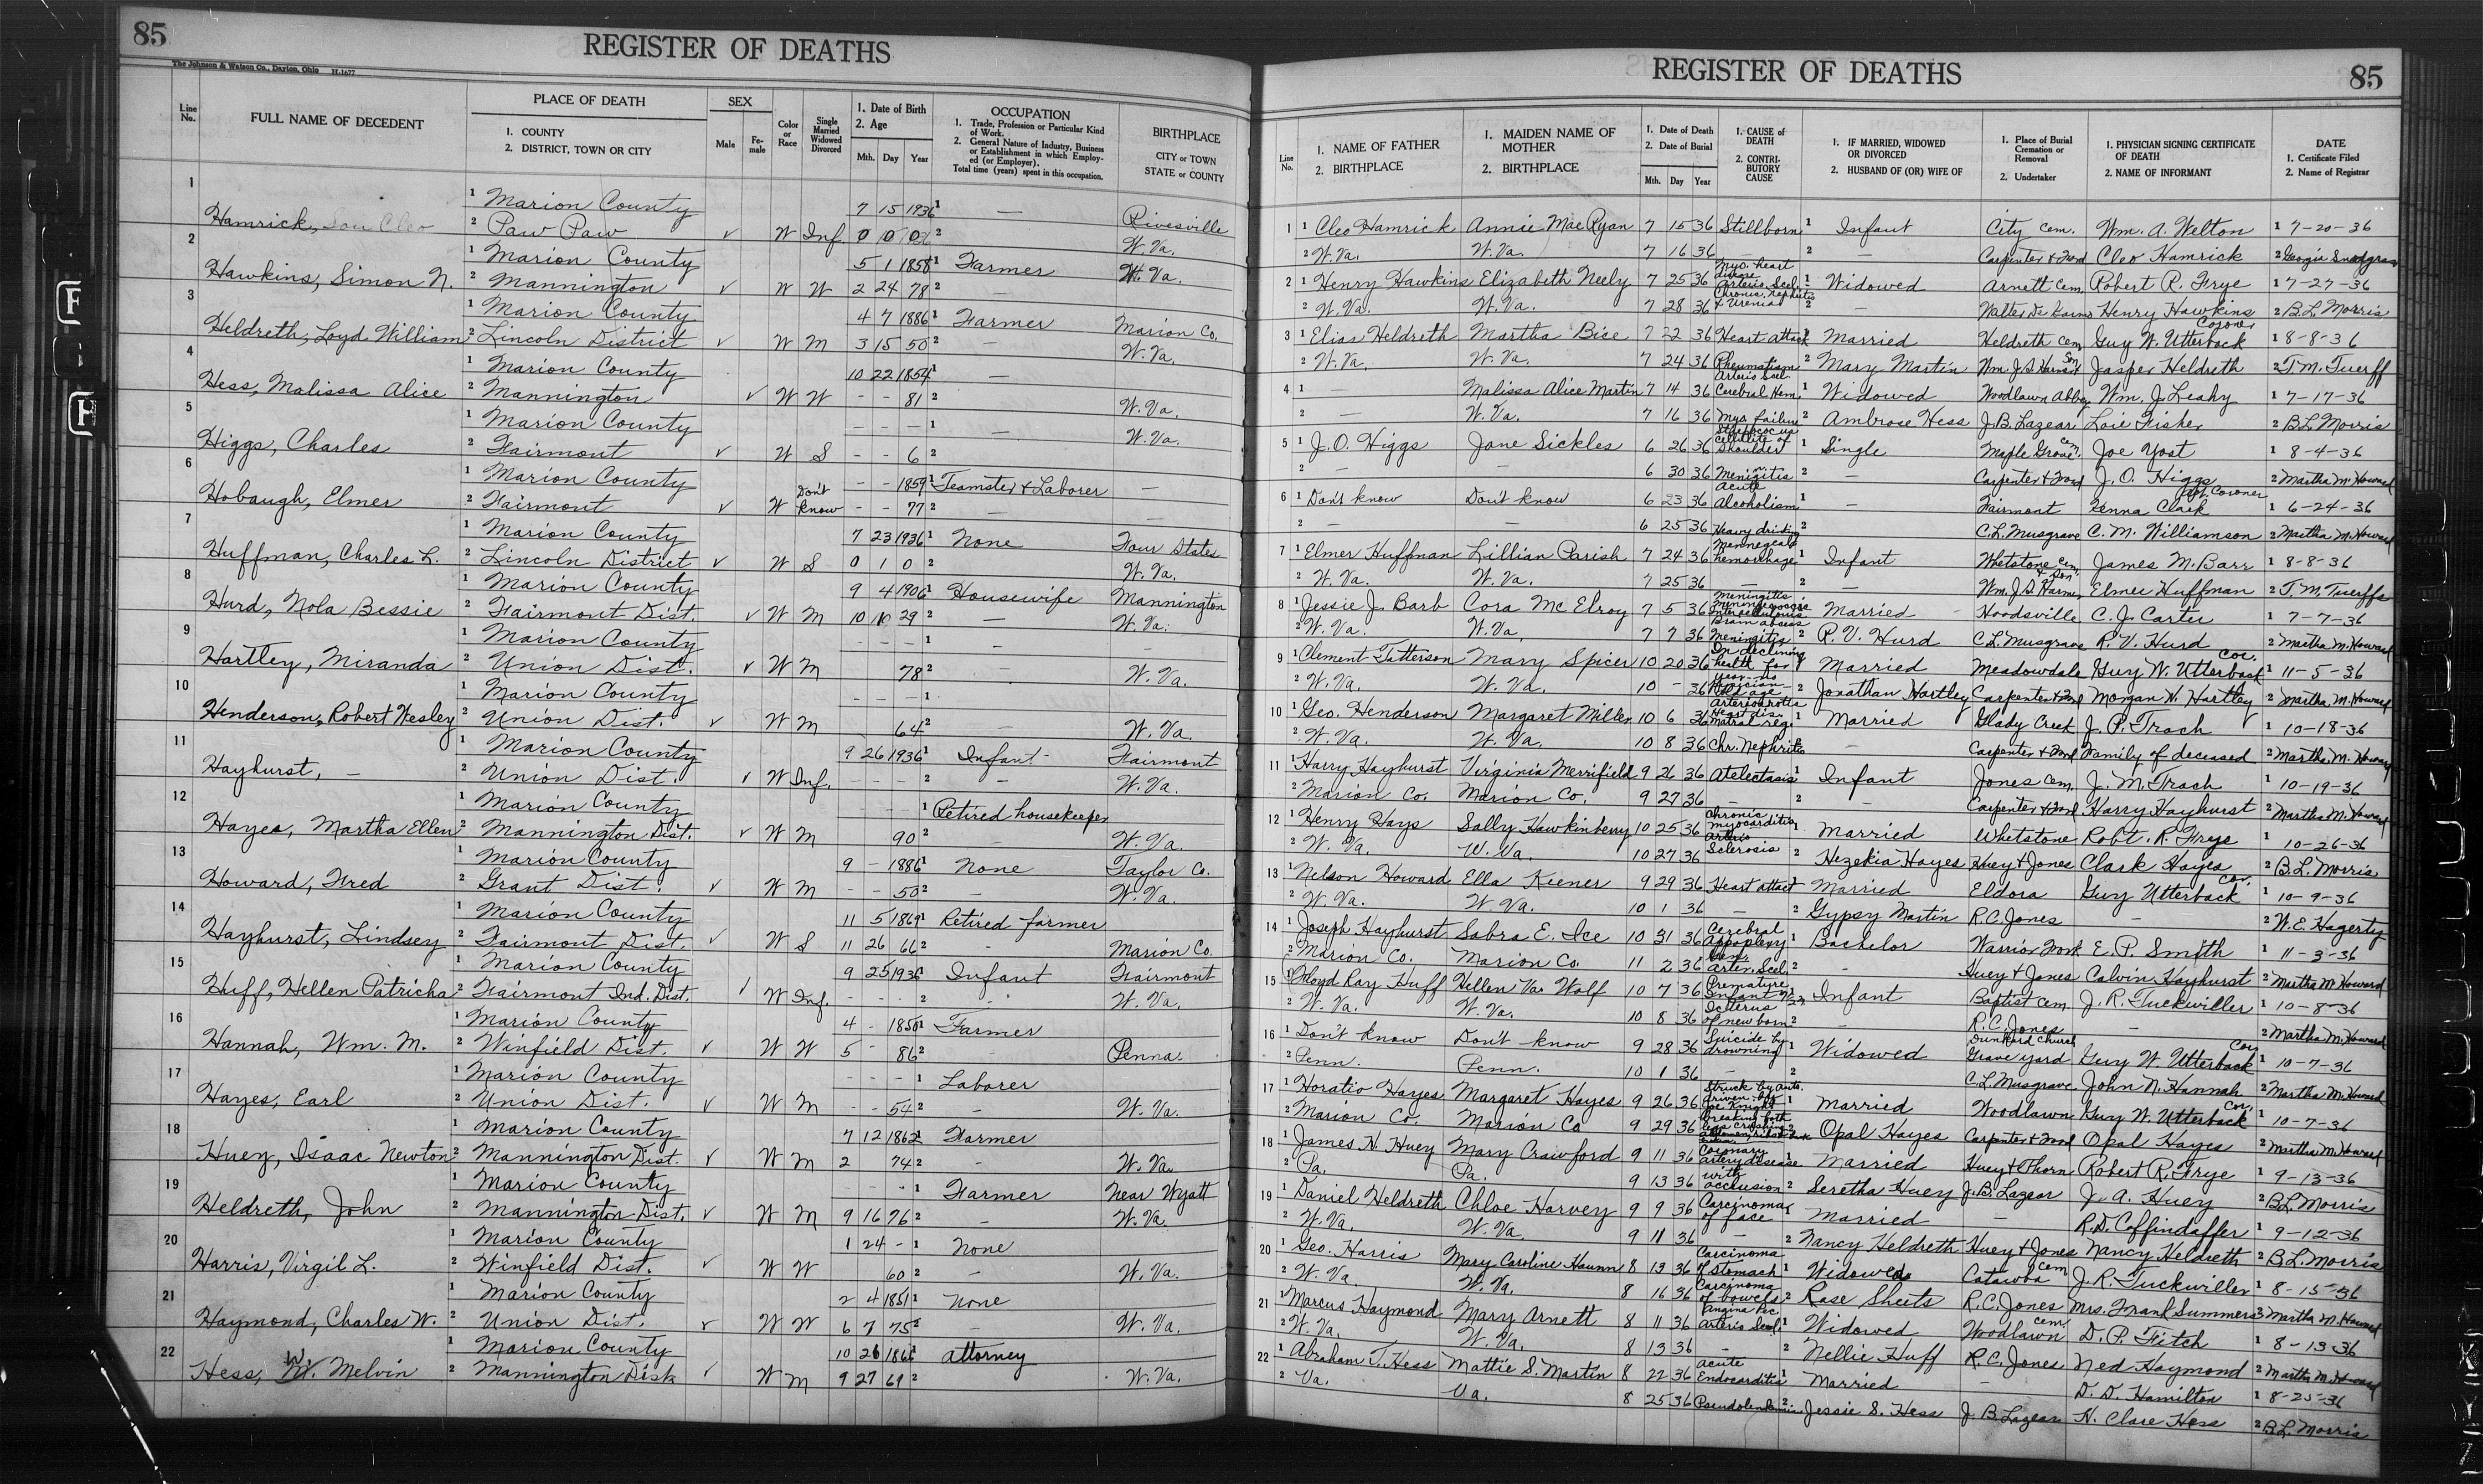 85
REGISTER OF DEATHS
The Johnson & Watson Co., Dayton, Ohio H-1677
Line No. FULL NAME OF DECEDENT PLACE OF DEATH 1. COUNTY 2. DISTRICT, TOWN OR CITY SEX Male Fe-male Color or Race Single Married Widowed Divorced 1. Date of Birth 2. Age Mth. Day Year OCCUPATION 1. Trade, Profession or Particular Kind of Work. 2. General Nature of Industry, Business or Establishment in which Employ-ed (or Employer). Total time (years) spent in this occupation. BIRTHPLACE CITY or TOWN STATE or COUNTY
1 1 Marion County 7 15 1936 1 — Rivesville
Hamrick, Son Cleo 2 Paw Paw ✓ W Inf. 0 0 0 2 W. Va.
2 1 Marion County 5 1 1858 1 Farmer
Hawkins, Simon N. 2 Mannington ✓ W W 2 24 78 2 W. Va.
3 1 Marion County 4 7 1886 1 Farmer Marion Co.
Heldreth, Loyd William 2 Lincoln District ✓ W M 3 15 50 2 — W. Va.
4 1 Marion County 10 22 1854 1 —
Hess, Malissa Alice 2 Mannington ✓ W W - - 81 2 W. Va.
5 1 Marion County - - - 1 — W. Va.
Higgs, Charles 2 Fairmont ✓ W S - - 6 2
6 1 Marion County - - 1859 1 Teamster & Laborer —
Hobaugh, Elmer 2 Fairmont ✓ W Don't know - - 77 2 — —
7 1 Marion County 7 23 1936 1 None Four States
Huffman, Charles L. 2 Lincoln District ✓ W S 0 1 0 2 W. Va.
8 1 Marion County 9 4 1906 1 Housewife Mannington
Hurd, Nola Bessie 2 Fairmont Dist. ✓ W M 10 10 29 2 — W. Va.
9 1 Marion County - - - 1 - —
Hartley, Miranda 2 Union Dist. ✓ W M 78 2 — W. Va.
10 1 Marion County - - - 1
Henderson, Robert Wesley 2 Union Dist. ✓ W M 64 2 W. Va.
11 1 Marion County 9 26 1936 1 Infant - Fairmont
Hayhurst, — 2 Union Dist. ✓ W Inf. - - - 2 — W. Va.
12 1 Marion County - - - 1 Retired housekeeper
Hayes, Martha Ellen 2 Mannington Dist. ✓ W M 90 2 — W. Va.
13 1 Marion County 9 - 1886 1 None Taylor Co.
Howard, Fred 2 Grant Dist. ✓ W M - - 50 2 — W. Va.
14 1 Marion County 11 5 1869 1 Retired farmer
Hayhurst, Lindsey 2 Fairmont Dist. ✓ W S 11 26 66 2 - Marion Co.
15 1 Marion County 9 25 1936 1 Infant Fairmont
Huff, Hellen Patricha 2 Fairmont Ind. Dist. ✓ W Inf. - - - 2 - W. Va.
16 1 Marion County 4 - 1850 1 Farmer
Hannah, Wm. M. 2 Winfield Dist. ✓ W W 5 - 86 2 - Penna.
17 1 Marion County - - - 1 Laborer
Hayes, Earl 2 Union Dist. ✓ W M - - 54 2 — W. Va.
18 1 Marion County 7 12 1862 1 Farmer
Huey, Isaac Newton 2 Mannington Dist. ✓ W M 2 74 2 - W. Va.
19 1 Marion County - - - 1 Farmer Near Wyatt
Heldreth, John 2 Mannington Dist. ✓ W M 9 16 76 2 — W. Va.
20 1 Marion County 1 24 - 1 None
Harris, Virgil L. 2 Winfield Dist. ✓ W W 60 2 — W. Va.
21 1 Marion County 2 4 1851 1 None
Haymond, Charles W. 2 Union Dist. ✓ W W 6 7 75 2 - W. Va.
22 1 Marion County 10 26 1866 1 Attorney
Hess, W. Melvin 2 Mannington Disk ✓ W M 9 27 69 2 W. Va.
REGISTER OF DEATHS
85
Line No. 1. NAME OF FATHER 2. BIRTHPLACE 1. MAIDEN NAME OF MOTHER 2. BIRTHPLACE 1. Date of Death 2. Date of Burial Mth. Day Year 1. CAUSE of DEATH 2. CONTRI-BUTORY CAUSE 1. IF MARRIED, WIDOWED OR DIVORCED 2. HUSBAND OF (OR) WIFE OF 1. Place of Burial Cremation or Removal 2. Undertaker 1. PHYSICIAN SIGNING CERTIFICATE OF DEATH 2. NAME OF INFORMANT DATE 1. Certificate Filed 2. Name of Registrar
1 1 Cleo Hamrick Annie Mae Ryan 7 15 36 Stillborn 1 Infant City Cem. Wm. A. Welton 1 7-20-36
2 W. Va. W. Va. 7 16 36 2 — Carpenter & Ford Cleo Hamrick 2 Georgia Snodgrass
2 1 Henry Hawkins Elizabeth Neely 7 25 36 Myo. heart disease Arterio Scel. 1 Widowed Arnett Cem. Robert R. Frye 1 7-27-36
2 W. Va. W. Va. 7 28 36 Chronic Nephritis & Uremia 2 — Henry Hawkins 2 B.L. Morris
3 1 Elias Heldreth Martha Bice 7 22 36 Heart attack 1 Married Heldreth cem Guy W. Utterback Coroner 1 8-8-36
2 W. Va. W. Va. 7 24 36 Rheumatism 2 Mary Martin Wm. J. S. Harmer & Son Jasper Heldreth 2 T. M. Tuerff
4 1 Malissa Alice Martin 7 14 36 Arterio Scel. Cerebral Hem. 1 Widowed Woodlawn Abbey Wm. J. Leahy 1 7-17-36
2 — W. Va. 7 16 36 Myo. failure 2 Ambrose Hess J. B. Lazear Loie Fisher 2 B L Morris
5 1 J. O. Higgs Jane Sickles 6 26 36 Streptococcus cellulitis of Shoulder 1 Single Maple Grove cem. Joe Yost 1 8-4-36
2 — — 6 30 36 Meningitis 2 — Carpenter & Ford J. O. Higgs 2 Martha M. Howard
6 1 Don't know Don't know 6 23 36 Acute Alcoholism 1 — Fairmont Kenna Clark Coroner 1 6-24-36
2 — — 6 25 36 Heavy drinking 2 C. L. Musgrave C. M. Williamson 2 Martha M. Howard
7 1 Elmer Huffman Lillian Parish 7 24 36 hemorrhage 1 Infant Whetstone Cem. James M. Barr 1 8-8-36
2 W. Va. W. Va. 7 25 36 — 2 Wm. J. S. Harmer & Son Elmer Huffman 2 T. M. Tuerffs
8 1 Jessie J. Barb Cora Mc Elroy 7 5 36 Meningitis 1 Married Hoodsville C. J. Carter 1 7-7-36
2 W. Va. W. Va. 7 7 36 Brain abscess Meningitis 2 R. V. Hurd C. L. Musgrave R. V. Hurd 2 Martha M. Howard
9 1 Clement Tatterson Mary Spicer 10 20 36 In declining health for 1 Married Meadowdale Guy W. Utterback Cor. 1 11-5-36
2 W. Va. W. Va. 10 - 36 year - no Physician Old age 2 Jonathan Hartley Carpenter & Ford Morgan W. Hartley 2 Martha M. Howard
10 1 Geo. Henderson Margaret Miller 10 6 36 Heart dis. 1 Married Glady Creek J. P. Trach 1 10-18-36
2 W. Va. W. Va. 10 8 36 Chr. Nephritis 2 — Carpenter & Ford Family of deceased 2 Martha M. Howard
11 1 Harry Hayhurst Virginia Merrifield 9 26 36 Atelectasis 1 Infant Jones Cem. J. M. Trach 1 10-19-36
2 Marion Co. Marion Co. 9 27 36 — 2 — Carpenter & Ford Harry Hayhurst 2 Martha M. Howard
12 1 Henry Hays Sally Hawkinberry 10 25 36 Chronic myocarditis 1 Married Whetstone Robt. R. Frye 1 10-26-36
2 W. Va. W. Va. 10 27 36 Arterio Sclerosis 2 Hezekia Hayes Huey & Jones Clark Hayes 2 B. L. Morris
13 1 Nelson Howard Ella Kiener 9 29 36 Heart attact 1 Married Eldora Guy Utterback Cor. 1 10-9-36
2 W. Va. W. Va. 10 1 36 — 2 Gypsy Martin R. C. Jones - 2 W. E. Hagerty
14 1 Joseph Hayhurst Sabra E. Ice 10 31 36 Cerebral Appoplexy 1 Bachelor Warrior Fork E. P. Smith 1 11-3-36
2 Marion Co. Marion Co. 11 2 36 Arter. Scel. 2 - Huey & Jones Calvin Hayhurst 2 Martha M. Howard
15 1 Floyd Ray Huff Hellen Va. Wolf 10 7 36 Premature Infant 1 Infant Baptist Cem. J. R. Tuckwiller 1 10-8-36
2 W. Va. W. Va. 10 8 36 Icterus of new born 2 — R. C. Jones - 2 Martha M. Howard
16 1 Don't know Don't know 9 28 36 Suicide by drowning 1 Widowed Dunkard Church Grave yard Guy W. Utterback Cor. 1 10-7-36
2 Penn. Penn. 10 1 36 — 2 C. L. Musgrave John N. Hannah 2 Martha M. Howard
17 1 Horatio Hayes Margaret Hayes 9 26 36 Struck by auto. driven by Joe Knight 1 Married Woodlawn Guy W. Utterback Cor. 1 10-7-36
2 Marion Co. Marion Co 9 29 36 breaking both legs crushing 2 Opal Hayes Carpenter & Ford Opal Hayes 2 Martha M. Howard
18 1 James H Huey Mary Crawford 9 11 36 Coronary artery disease 1 Married Huey & Thorn Robert R. Frye 1 9-13-36
2 Pa. Pa. 9 13 36 with occlusion 2 Seretha Huey J. B. Lazear J. A. Huey 2 B L Morris
19 1 Daniel Heldreth Chloe Harvey 9 9 36 Carcinoma of face 1 Married — R. D. Coffindaffer 1 9-12-36
2 W. Va. W. Va. 9 11 36 — 2 Nancy Heldreth Huey & Jones Nancy Heldreth 2 B. L. Morris
20 1 Geo. Harris Mary Caroline Haunn 8 13 36 Carcinoma of stomach 1 Widowed Catawba cem J. R. Tuckwiller 1 8-15-36
2 W. Va. W. Va. 8 16 36 Carcinoma of bowels 2 Rose Sheets R. C. Jones Mrs. Frank Summers 2 Martha M. Howard
21 1 Marcus Haymond Mary Arnett 8 11 36 Angina Pec Arterio Scel. 1 Widowed Woodlawn cem D. P. Fitch 1 8-13-36
2 W. Va. W. Va. 8 13 36 - 2 Nellie Huff R. C. Jones Ned Haymond 2 Martha M. Howard
22 1 Abraham T. Hess Mattie S. Martin 8 22 36 Acute Endocarditis 1 Married — D. D. Hamilton 1 8-25-36
2 Va. Va. 8 25 36 2 Jessie S. Hess J. B. Lazear H. Clare Hess 2 B. L. Morris